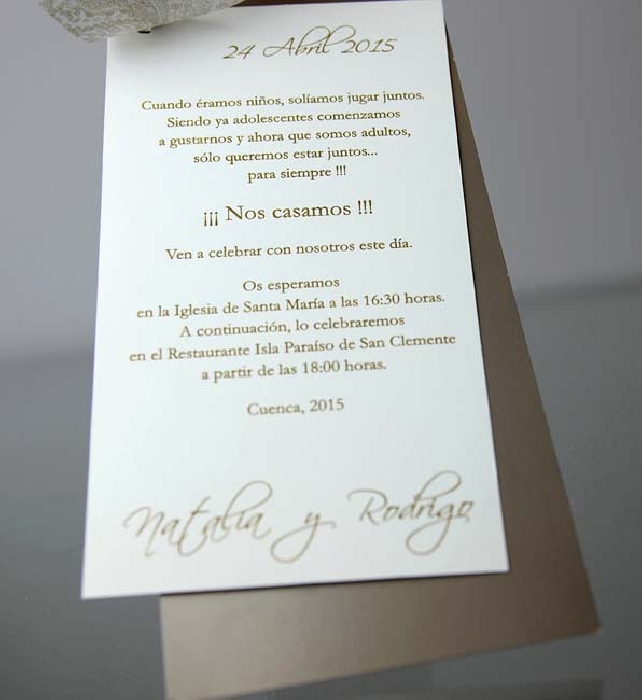 24 Abril 2015
Cuando éramos niños, solíamos jugar juntos.
Siendo ya adolescentes comenzamos
a gustarnos y ahora que somos adultos,
sólo queremos estar juntos...
para siempre !!!
¡¡¡ Nos casamos !!!
Ven a celebrar con nosotros este día.
Os esperamos
en la Iglesia de Santa María a las 16:30 horas.
A continuación, lo celebraremos
en el Restaurante Isla Paraíso de San Clemente
a partir de las 18:00 horas.
Cuenca, 2015
Natalia y Rodrigo